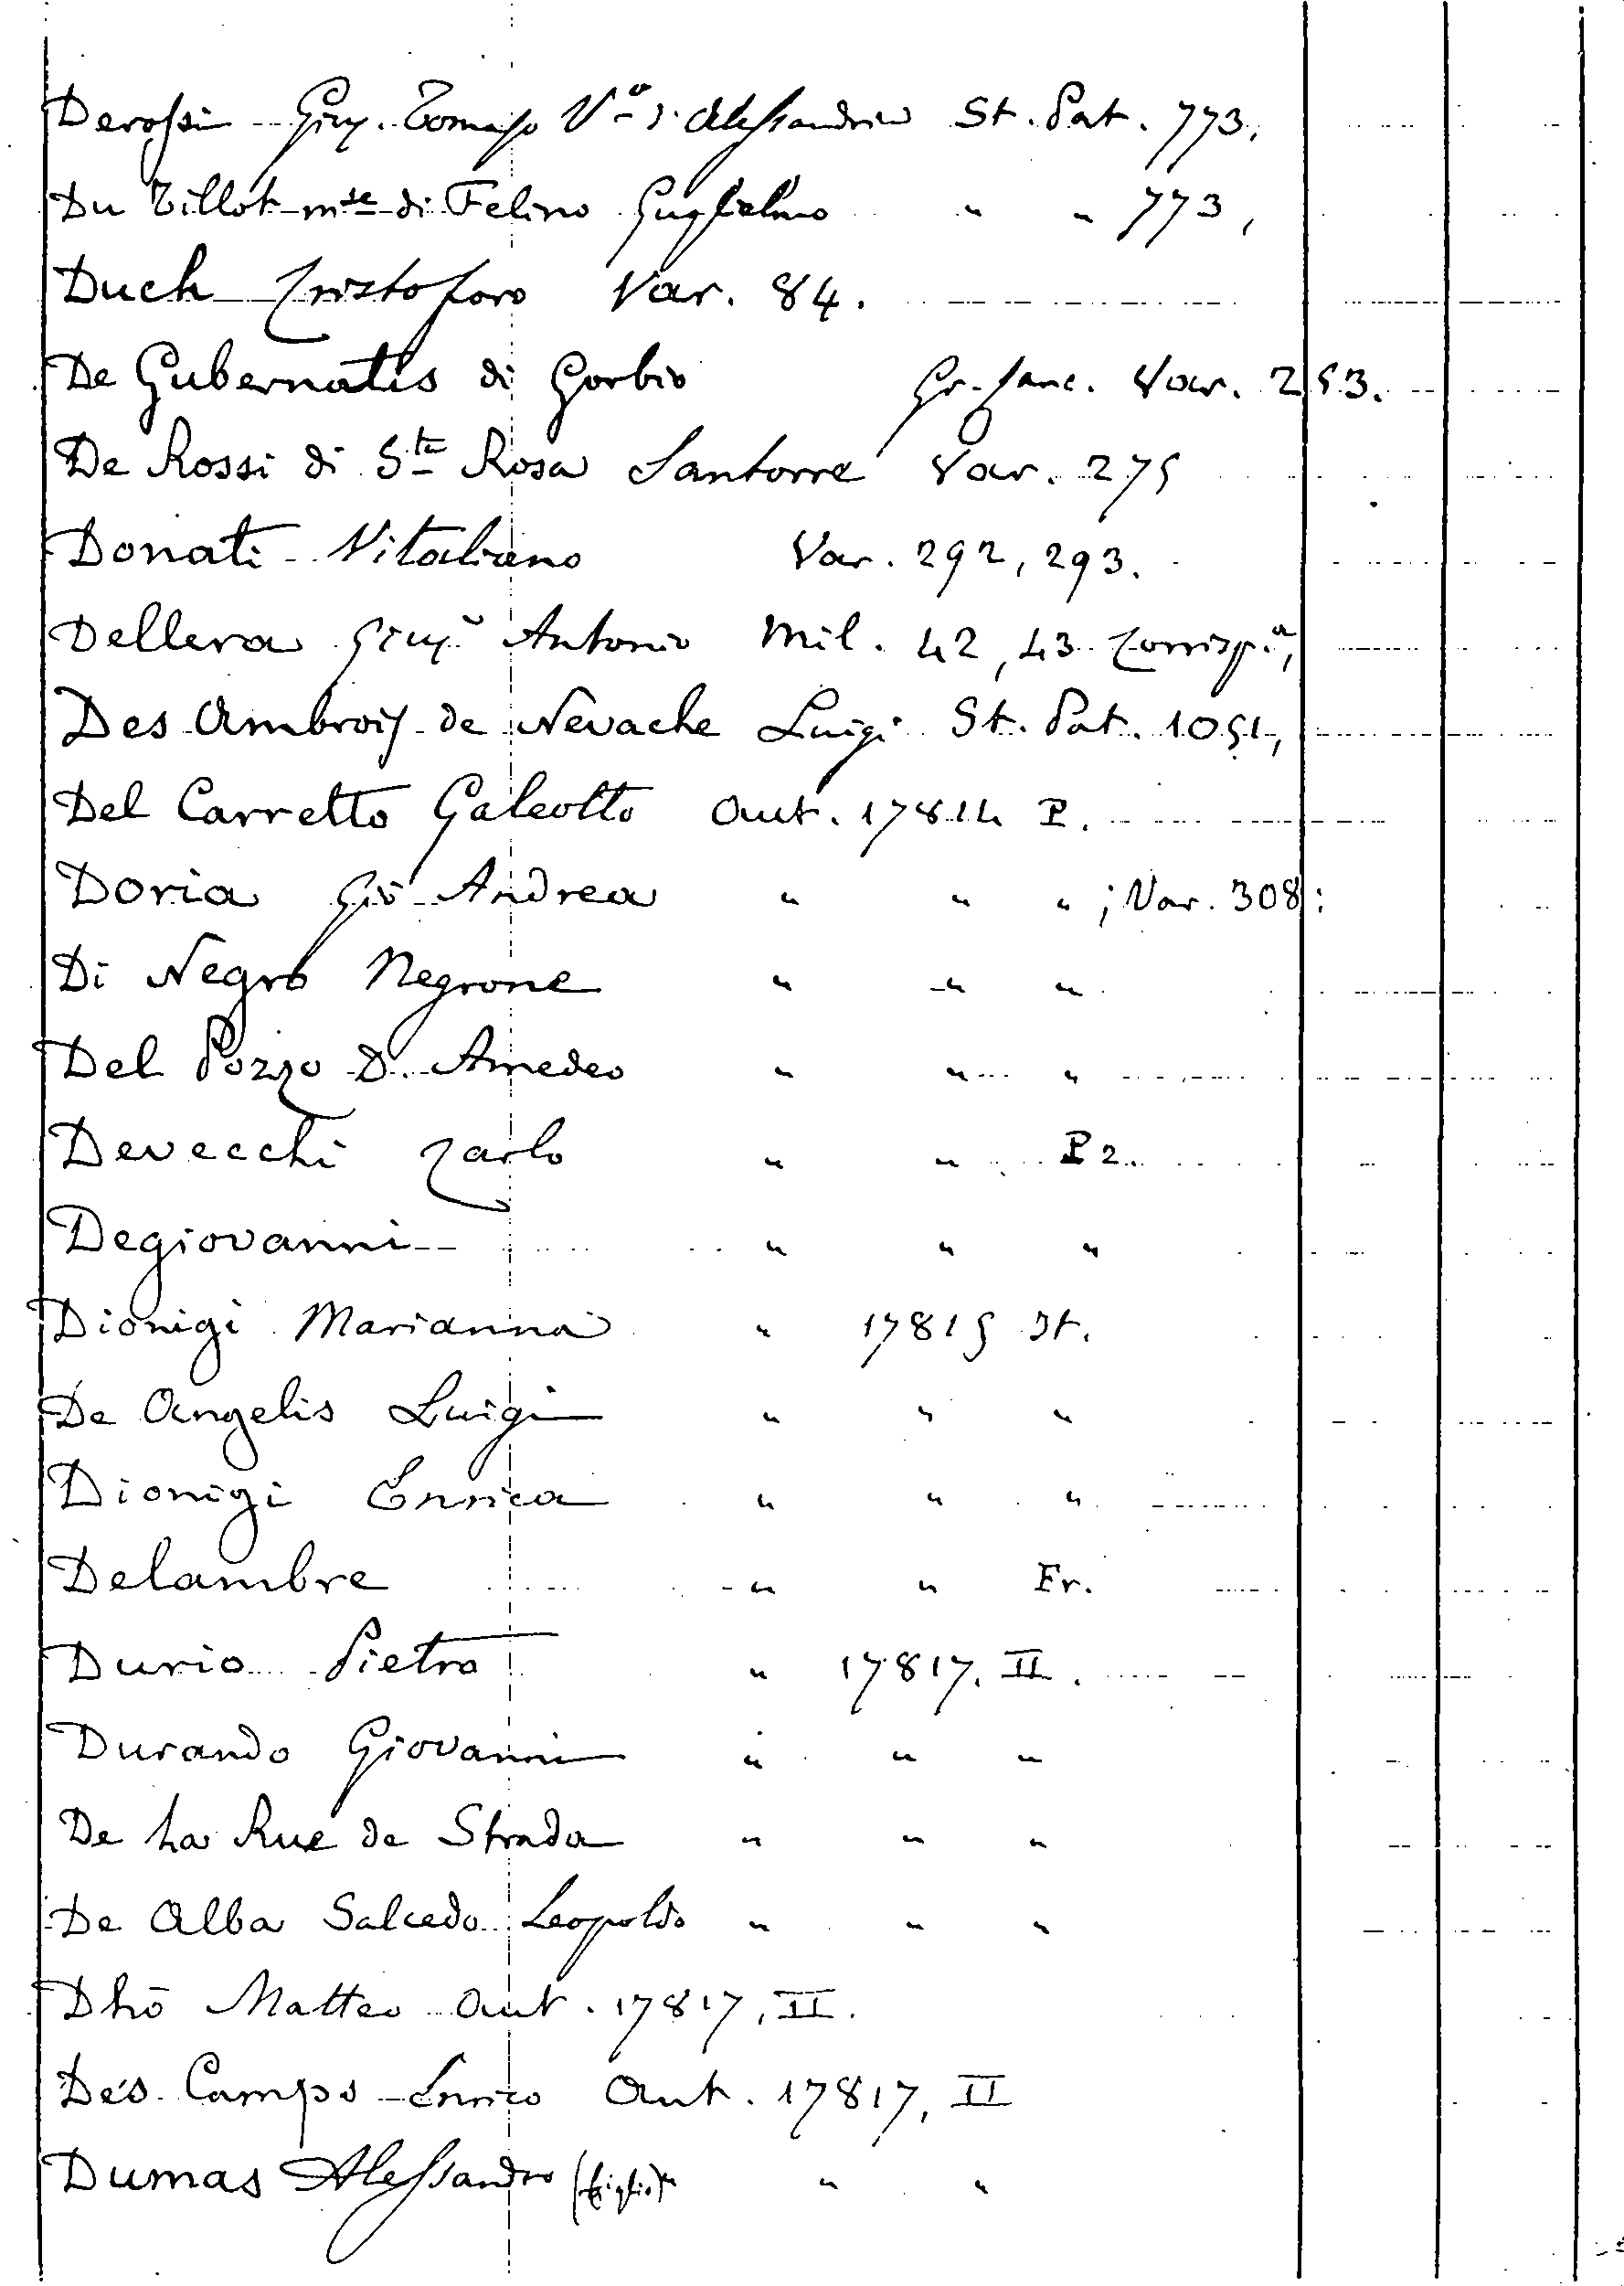 Derossi Giuş. Tomaso Vº d'Alessandria St. Pat. 773,
Du Tillot mse di Felino Guglielmo " " 773,
Duch Cristoforo Var. 84.
De Gubernatis di Gorbio Gr. Canc. Var. 253.
De Rossi di Sta Rosa Santorre Var. 275
Donati Vitaliano Var. 292, 293.
Dellera Giuse Antonio Mil. 42, 43 Corrispa,
Des Ambrois de Nevache Luigi St. Pat. 1051,
Del Carretto Galeotto Aut. 17814 P.
Doria Giō Andrea " " " ; Var. 308:
Di Negro Negrone " " "
Del Pozzo D. Amedeo " " "
Devecchi Carlo " " P 2.
Degiovanni " " "
Dionigi Marianna " 17815 It.
De Angelis Luigi " " "
Dionigi Enrica " " "
Delambre " " Fr.
Durio Pietro " 17817. II.
Durando Giovanni " " "
De La Rue de Strada " " "
De Alba Salcedo Leopoldo " " "
Dhō Matteo Aut. 17817, II.
Des Camps Enrico Aut. 17817, II
Dumas Alessandro (figlio) " " "